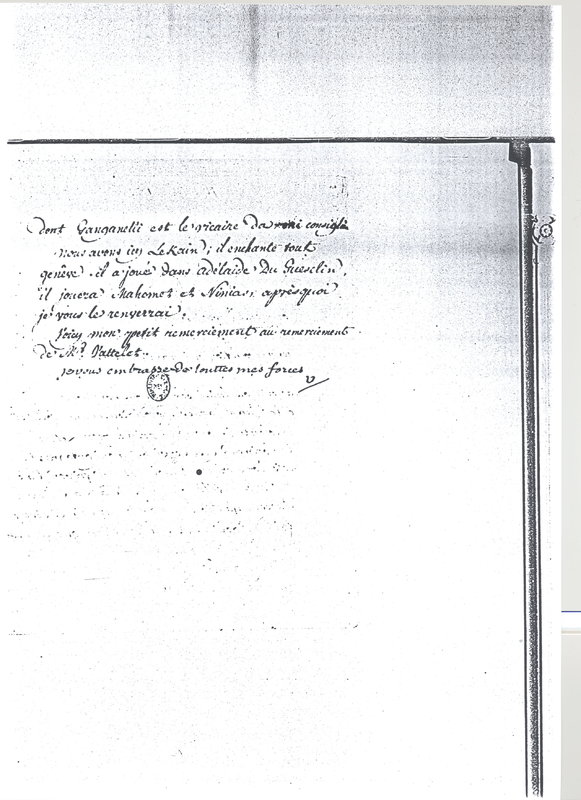 dont Ganganelli est le vicaire da veri consigli
nous avons icy Lekain ; il enchante tout
genève . il a joué dans adélaide Du Guesclin,
il jouera Mahomet et Ninias, aprèsquoi
je vous le renverrai .
Voicy mon petit remerciement au remerciement
de Mr Vattelet .
je vous embrasse de touttes mes forces
V